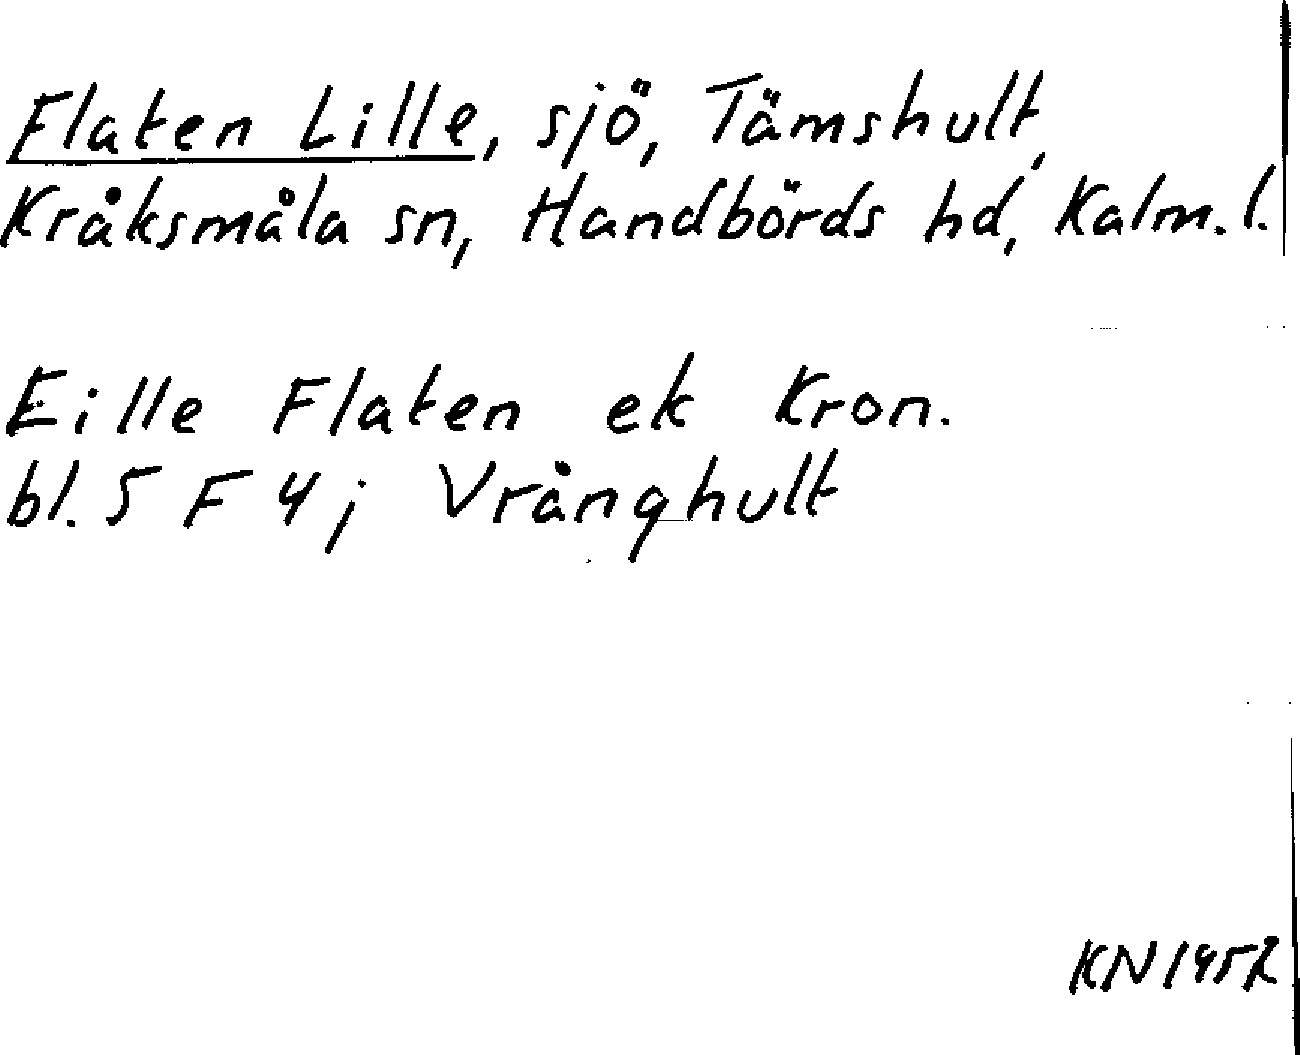 Flaten Lille, sjö, Tämshult,
Kråksmåla sn, Handbörds hd, Kalm. l.
Eille Flaten ek Kron.
bl. 5 F 4 j Vrånghult
KN 1952